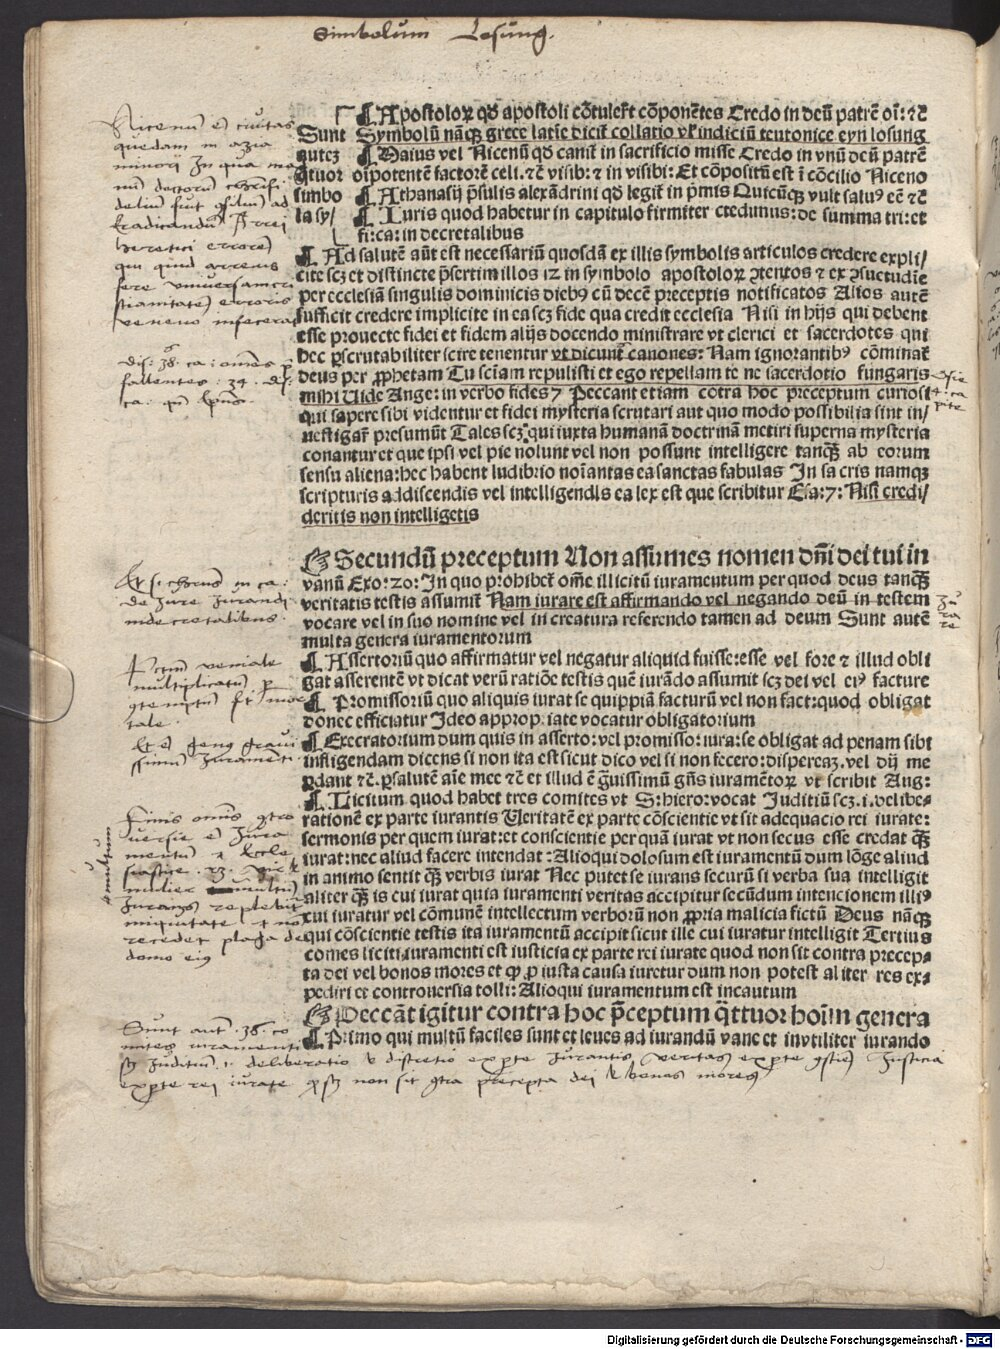 Simbolum Losung.
¶ Apostoloꝝ qḋ apostoli cōtulert cōponētes Credo in deū patrē oi: ⁊c̄
Sunt Symbolū nāqꝫ grece latīe dicit collatio vel indiciū teutonice eyn losung
autez ¶ Maius vel Nicenū qḋ canit in sacrificio misse Credo in vnū deū patrē
q̄tuor oīpotentē factorē celi. ⁊c̄ visib: ⁊ in visibi: Et cōpositū est ī cōcilio Niceno
simbo ¶ Athanasij p̄sulis alexādrini qḋ legit in p̄mis Quicūqꝫ vult saluꝰ eē ⁊c̄
la sy/ ¶ Iuris quod habetur in capitulo firmiter ctedunus: de summa tri: et
fi: ca: in decretalibus
¶ Ad salutē aūt est necessariū quosdā ex illis symbolis articulos credere expli/
cite scꝫ et distincte p̄sertim illos 12 in symbolo apostoloꝝ ꝯtentos ⁊ ex ꝯsuetudīe
per ecclesiā singulis dominicis diebꝰ cū decē preceptis notificatos Alios autē
sufficit credere implicite in ea scꝫ fide qua credit ecclesia Nisi in hijs qui debent
esse prouecte fidei et fidem alijs docendo ministrare vt clerici et sacerdotes qui
hec ꝑscrutabiliter scire tenentur vt dicunt canones: Nam ignorantibꝰ cōminat̄
deus per ꝓphetam Tu sciam repulisti et ego repellam te ne sacerdotio fungaris
mihi Uide Ange: in verbo fides 7 Peccant etiam cotra hoc preceptum curiosi
qui sapere sibi videntur et fidei mysteria scrutari aut quo modo possibilia sint in/
uestigar̄ presumūt Tales scꝫ qui iuxta humanā doctrinā metiri superna mysteria
conantur et que ipsi vel pie nolunt vel non possunt intelligere tanqꝫ ab eorum
sensu aliena: hec habent ludibrio noīantas ea sanctas fabulas In sa cris namqꝫ
scripturis addiscendis vel intelligendis ea lex est que scribitur Esa: 7: Nisi credi/
deritis non intelligetis
Secundū preceptum Non assumes nomen dn̄i dei tui in
vanū Exo: 20: In quo prohibet om̄e illicitū iuramentum per quod deus tanqꝫ
veritatis testis assumit̄ Nam iurare est affirmando vel negando deū in testem
vocare vel in suo nomine vel in creatura referendo tamen ad deum Sunt autē
multa genera iuramentorum
¶ Assertoriū quo affirmatur vel negatur aliquid fuisse: esse vel fore ⁊ illud obli
gat asserentē vt dicat verū ratiōe testis quē iurādo assumit scꝫ dei vel eiꝰ facture
¶ Promissoriū quo aliquis iurat se quippiā facturū vel non fact: quod obligat
donec efficiatur Ideo approp, iate vocatur obligatorium
¶ Execratorium dum quis in asserto: vel promisso: iura: se obligat ad penam sibi
infligendam dicens si non ita est sicut dico vel si non fecero: dispereaꝫ. vel dij me
ꝑdant ⁊c̄. ꝑ salutē aīe mee ⁊c̄ et illud ē g̃uissimū gn̄s iuramētoꝝ vt scribit Aug:
¶ Licitum quod habet tres comites vt S: hiero: vocat Juditiū scꝫ. i. velibe-
rationē ex parte iurantis Ueritatē ex parte cōscientie vt sit adequacio rei iurate:
sermonis per quem iurat: et conscientie per quā iurat vt non secus esse credat qꝫ
iurat: nec aliud facere intendat: Alioqui dolosum est iuramentū dum lōge aliud
in animo sentit qꝫ verbis iurat Nec putet se iurans securū si verba sua intelligit
aliter qꝫ is cui iurat quia iuramenti veritas accipitur secūdum intencionem illiꝰ
cui iuratur vel cōmunē intellectum verborū non ꝓpria malicia fictū Deus nāqꝫ
qui cōscientie testis ita iuramentū accipit sicut ille cui iuratur intelligit Tertius
comes liciti iuramenti est iusticia ex parte rei iurate quod non sit contra precep-
ta dei vel bonos mores et qꝫ ꝓ iusta causa iuretur dum non potest aliter res ex-
pediri et controuersia tolli: Alioqui iuramentum est incautum
Peccāt igitur contra hoc p̄ceptum q̄ttuor hoīm genera
¶ Primo qui multū faciles sunt et leues ad iurandū vane et invtiliter iurando
Nicenum est ciuitas
quedam in azia
minori In qua
heretici errorē
veneno infecerat
multiplicatū
tale.
Iuramenti
mulier multū
Iurans replebitur
iniquitate et non
recedet plaga de
domo eiꝰ
Iudicium .i. deliberatio ⁊ discretio ex parte Iurantis veritas ex parte Iusticia
ex parte rei iurate non sit contra precepta dei ⁊ bonos mores
Digitalisierung gefördert durch die Deutsche Forschungsgemeinschaft - DFG